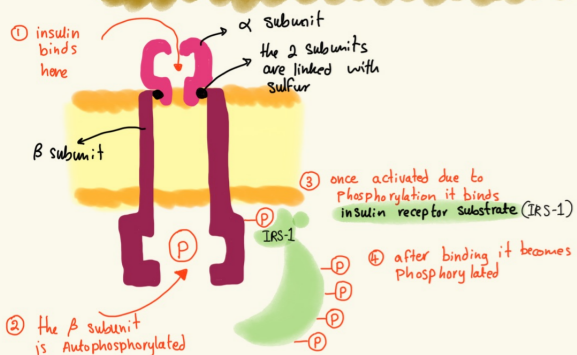 ① insulin
binds
here
α subunit
the 2 subunits
are linked with
sulfur
β subunit
③ once activated due to
phosphorylation it binds
insulin receptor substrate (IRS-1)
P
IRS-1
P
④ after binding it becomes
phosphorylated
P
P
P
P
② the β subunit
is Autophosphorylated